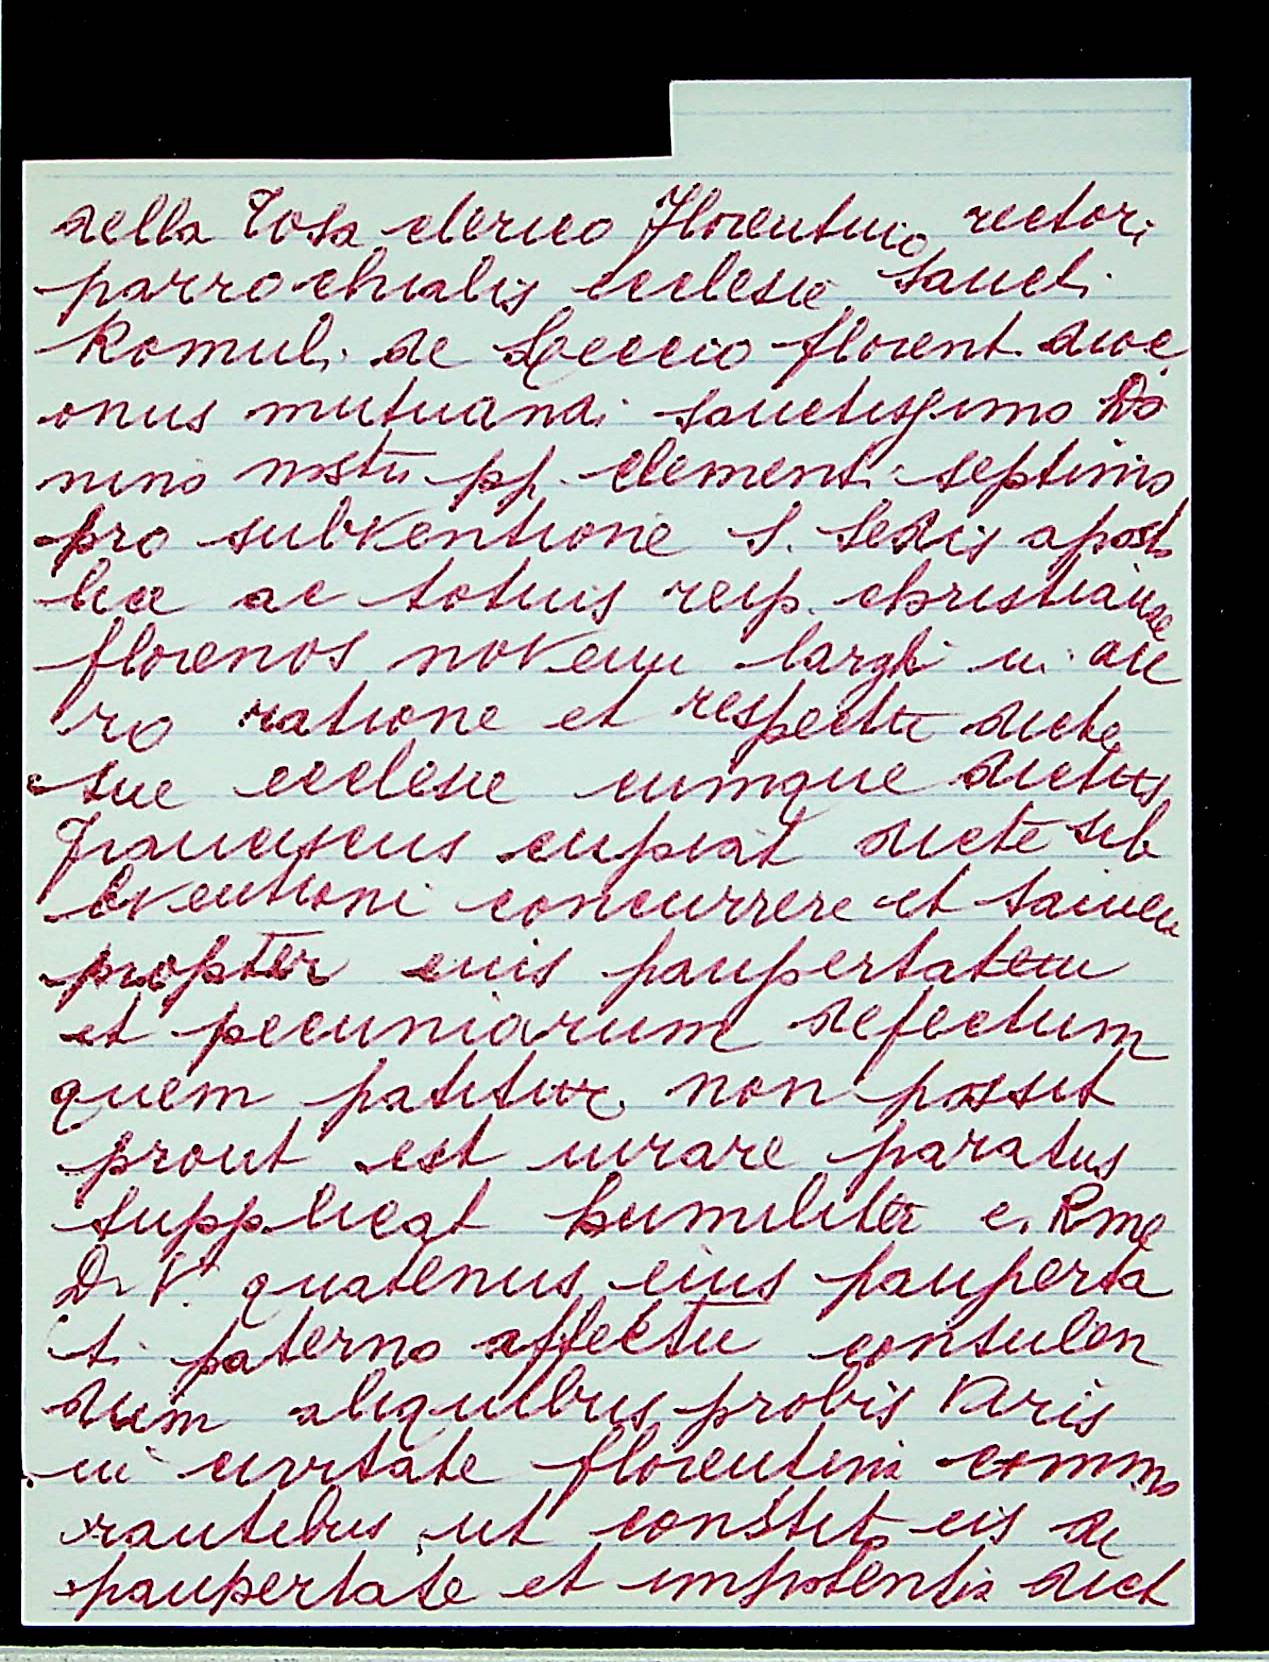 della Tosa clerico Florentino rectori
parrochialis ecclesie Sancti
Romuli de florent. dioc
onus mutuandi sanctissimo Do
mino nostru pp. Clementi septimo
pro subventione S. Sedis aposto
lice ac totius reip. christiane
florenos novem largh in au
ro ratione et respectu dicte
sue ecclesie cumque dictus
Franciscus cupiat dicte sub
bventioni concurrere et tamen
propter eius paupertatem
et pecuniarum defectum
quem patitur non possit
prout est iurare paratus
supplicat humiliter e. Rme
D. V. quatenus eius pauperta
ti paterno affectu consulen
dum aliquibus probis viris
in civitate florentina commo
rantibus ut constito eis de
paupertate et impotentia dict